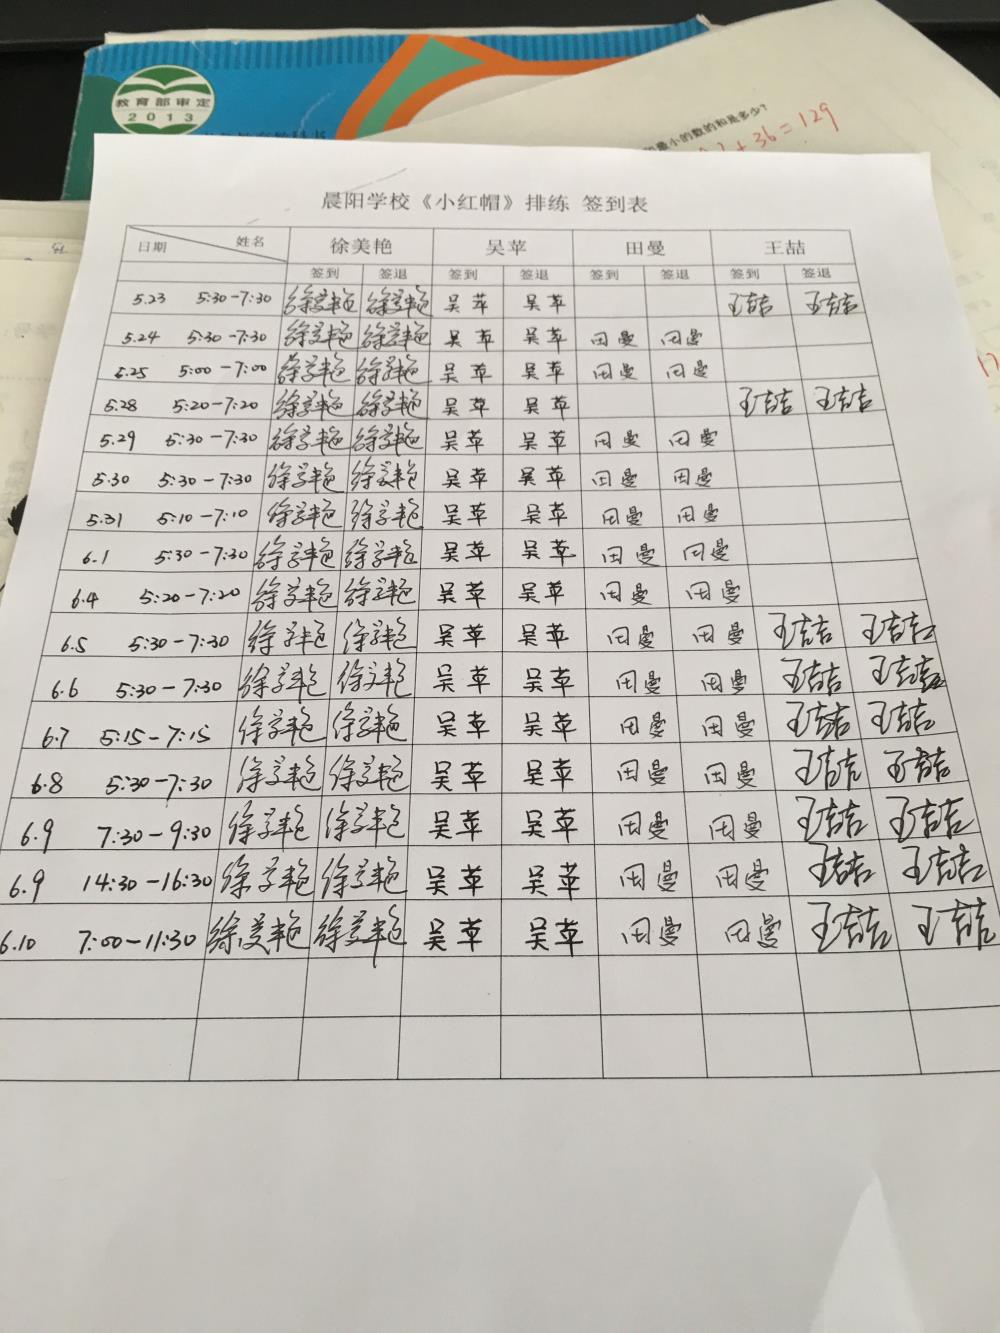 教育部审定
2013
最小的数的和是多少?
+ 36 = 129
晨阳学校《小红帽》排练 签到表
日期 姓名 徐美艳 吴苹 田曼 王喆
签到 签退 签到 签退 签到 签退 签到 签退
5.23 5:30-7:30 徐美艳 徐美艳 吴苹 吴苹 王喆 王喆
5.24 5:30-7:30 徐美艳 徐美艳 吴苹 吴苹 田曼 田曼
5.25 5:00-7:00 徐美艳 徐美艳 吴苹 吴苹 田曼 田曼
5.28 5:20-7:20 徐美艳 徐美艳 吴苹 吴苹 王喆 王喆
5.29 5:30-7:30 徐美艳 徐美艳 吴苹 吴苹 田曼 田曼
5.30 5:30-7:30 徐美艳 徐美艳 吴苹 吴苹 田曼 田曼
5.31 5:10-7:10 徐美艳 徐美艳 吴苹 吴苹 田曼 田曼
6.1 5:30-7:30 徐美艳 徐美艳 吴苹 吴苹 田曼 田曼
6.4 5:20-7:20 徐美艳 徐美艳 吴苹 吴苹 田曼 田曼
6.5 5:30-7:30 徐美艳 徐美艳 吴苹 吴苹 田曼 田曼 王喆 王喆
6.6 5:30-7:30 徐美艳 徐美艳 吴苹 吴苹 田曼 田曼 王喆 王喆
6.7 5:15-7:15 徐美艳 徐美艳 吴苹 吴苹 田曼 田曼 王喆 王喆
6.8 5:30-7:30 徐美艳 徐美艳 吴苹 吴苹 田曼 田曼 王喆 王喆
6.9 7:30-9:30 徐美艳 徐美艳 吴苹 吴苹 田曼 田曼 王喆 王喆
6.9 14:30-16:30 徐美艳 徐美艳 吴苹 吴苹 田曼 田曼 王喆 王喆
6.10 7:00-11:30 徐美艳 徐美艳 吴苹 吴苹 田曼 田曼 王喆 王喆